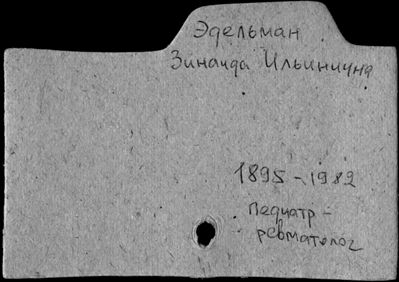 Эдельман
Зинаида Ильинична
1895-1982
педиатр-
ревматолог